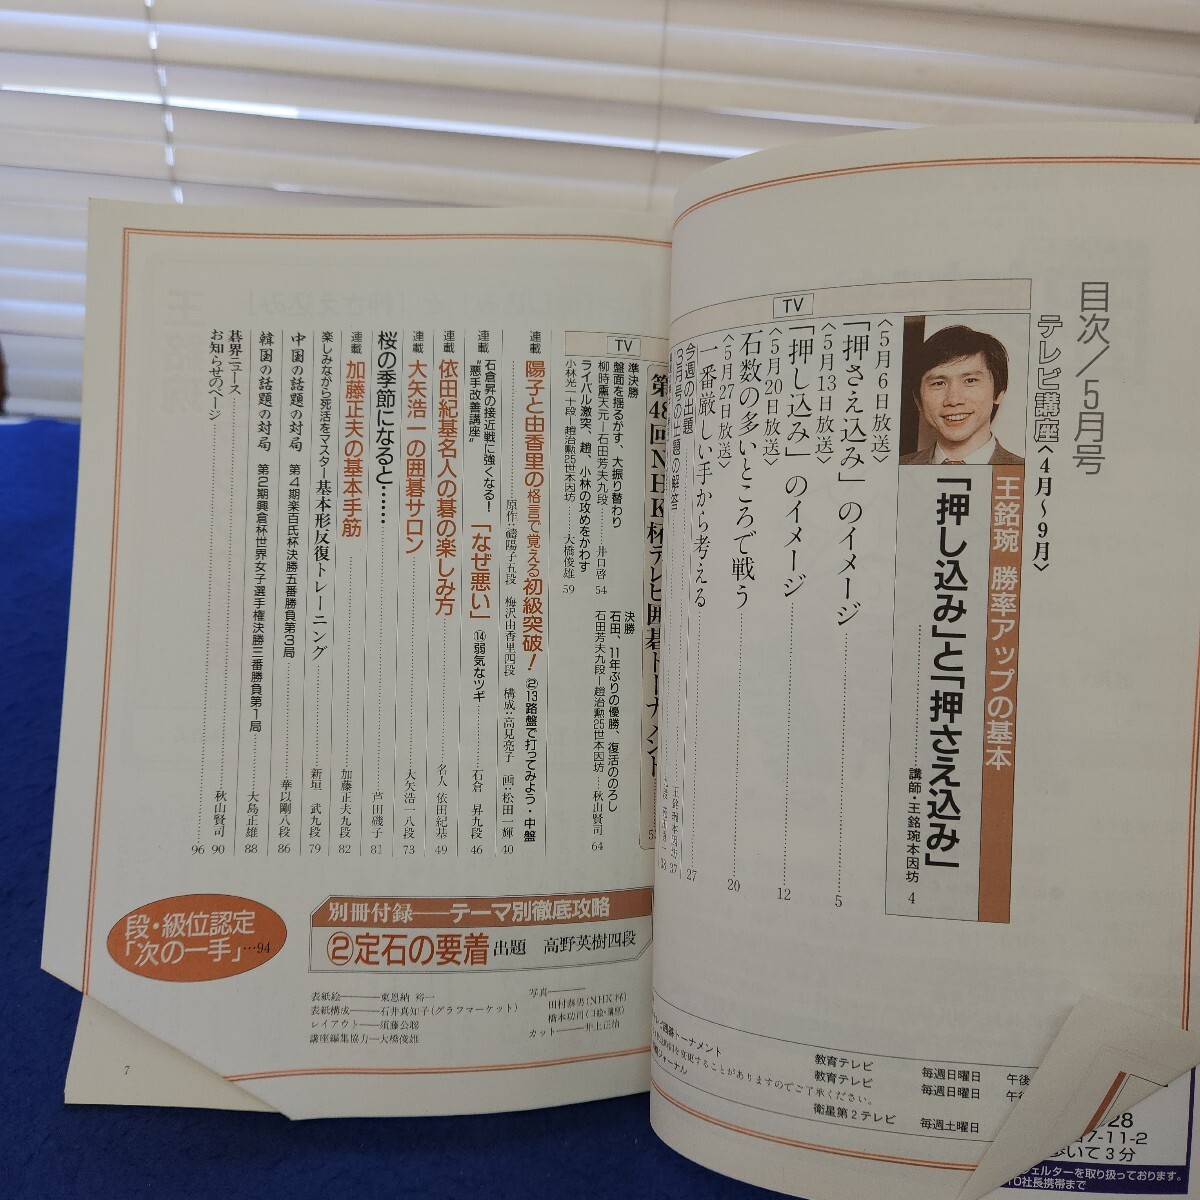 目次／5月号
テレビ講座〈4月〜9月〉
王銘琬 勝率アップの基本
「押し込み」と「押さえ込み」
講師・王銘琬本因坊 4
TV
〈5月6日放送〉
「押さえ込み」のイメージ 5
〈5月13日放送〉
「押し込み」のイメージ 12
〈5月20日放送〉
石数の多いところで戦う 20
〈5月27日放送〉
一番厳しい手から考える 27
今週の出題
3月号の出題の解答
教育テレビ 毎週日曜日 午後
教育テレビ 毎週日曜日 午後
変更することがありますのでご了承ください。
衛星第2テレビ 毎週土曜日
第48回NHK杯テレビ囲碁トーナメント
TV
準決勝
盤面を揺るがす、大振り替わり
柳時熏天元―石田芳夫九段 井口啓 54
ライバル激突、趙、小林の攻めをかわす
小林光一十段―趙治勲25世本因坊 大橋俊雄 59
決勝
石田、11年ぶりの優勝、復活ののろし
石田芳夫九段―趙治勲25世本因坊 秋山賢司 64
連載 陽子と由香里の格言で覚える初級突破！ ②13路盤で打ってみよう・中盤
原作：禱陽子五段 梅沢由香里四段 構成：高見亮子 画：松田一輝 40
連載 石倉昇の接近戦に強くなる！“悪手改善講座” 「なぜ悪い」 ⑭弱気なツギ 石倉 昇九段 46
連載 依田紀基名人の碁の楽しみ方 名人 依田紀基 49
連載 大矢浩一の囲碁サロン 大矢浩一八段 73
桜の季節になると…… 芦田磯子 81
連載 加藤正夫の基本手筋 加藤正夫九段 82
楽しみながら死活をマスター 基本形反復トレーニング 新垣 武九段 79
中国の話題の対局 第4期楽百氏杯決勝五番勝負第3局 華以剛八段 86
韓国の話題の対局 第2期興倉杯世界女子選手権決勝三番勝負第1局 大島正雄 88
碁界ニュース 秋山賢司 90
お知らせのページ 96
段・級位認定
「次の一手」…94
別冊付録――テーマ別徹底攻略
②定石の要着 出題 高野英樹四段
表紙絵―――東恩納 裕一
表紙構成―――石井真知子（グラフマーケット）
レイアウト―須藤公聡
講座編集協力―大橋俊雄
写真―――
田村泰男（NHK杯）
橋本功司（口絵・講座）
カット―――井上正治
7
28
7-11-2
歩いて3分
シェルターを取り扱っております。
社長携帯まで